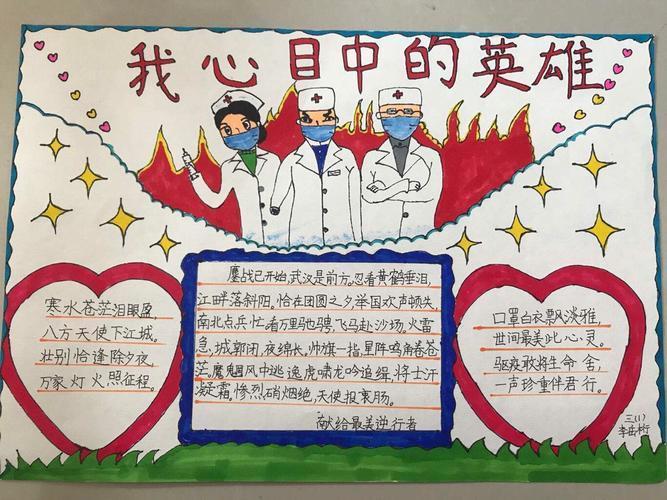 我心目中的英雄
寒水苍茫泪眼盈,
八方天使下江城。
壮别恰逢除夕夜,
万家灯火照征程。
鏖战已开始,武汉是前方。忍看黄鹤垂泪,
江畔落斜阳。恰在团圆之夕,举国欢声顿失,
南北点兵忙。看万里驰骋,飞马赴沙场,火雷
急,城郭闭,夜绵长。帅旗一指,星阵鸣角春苍
茫。魔魍风中逃逸,虎啸龙吟追缉,将士汗
凝霜,惨烈硝烟绝,天使报衷肠。
献给最美逆行者
口罩白衣飘淡雅,
世间最美此心灵。
驱疫敢将生命舍,
一声珍重伴君行。
三(1)
李岳